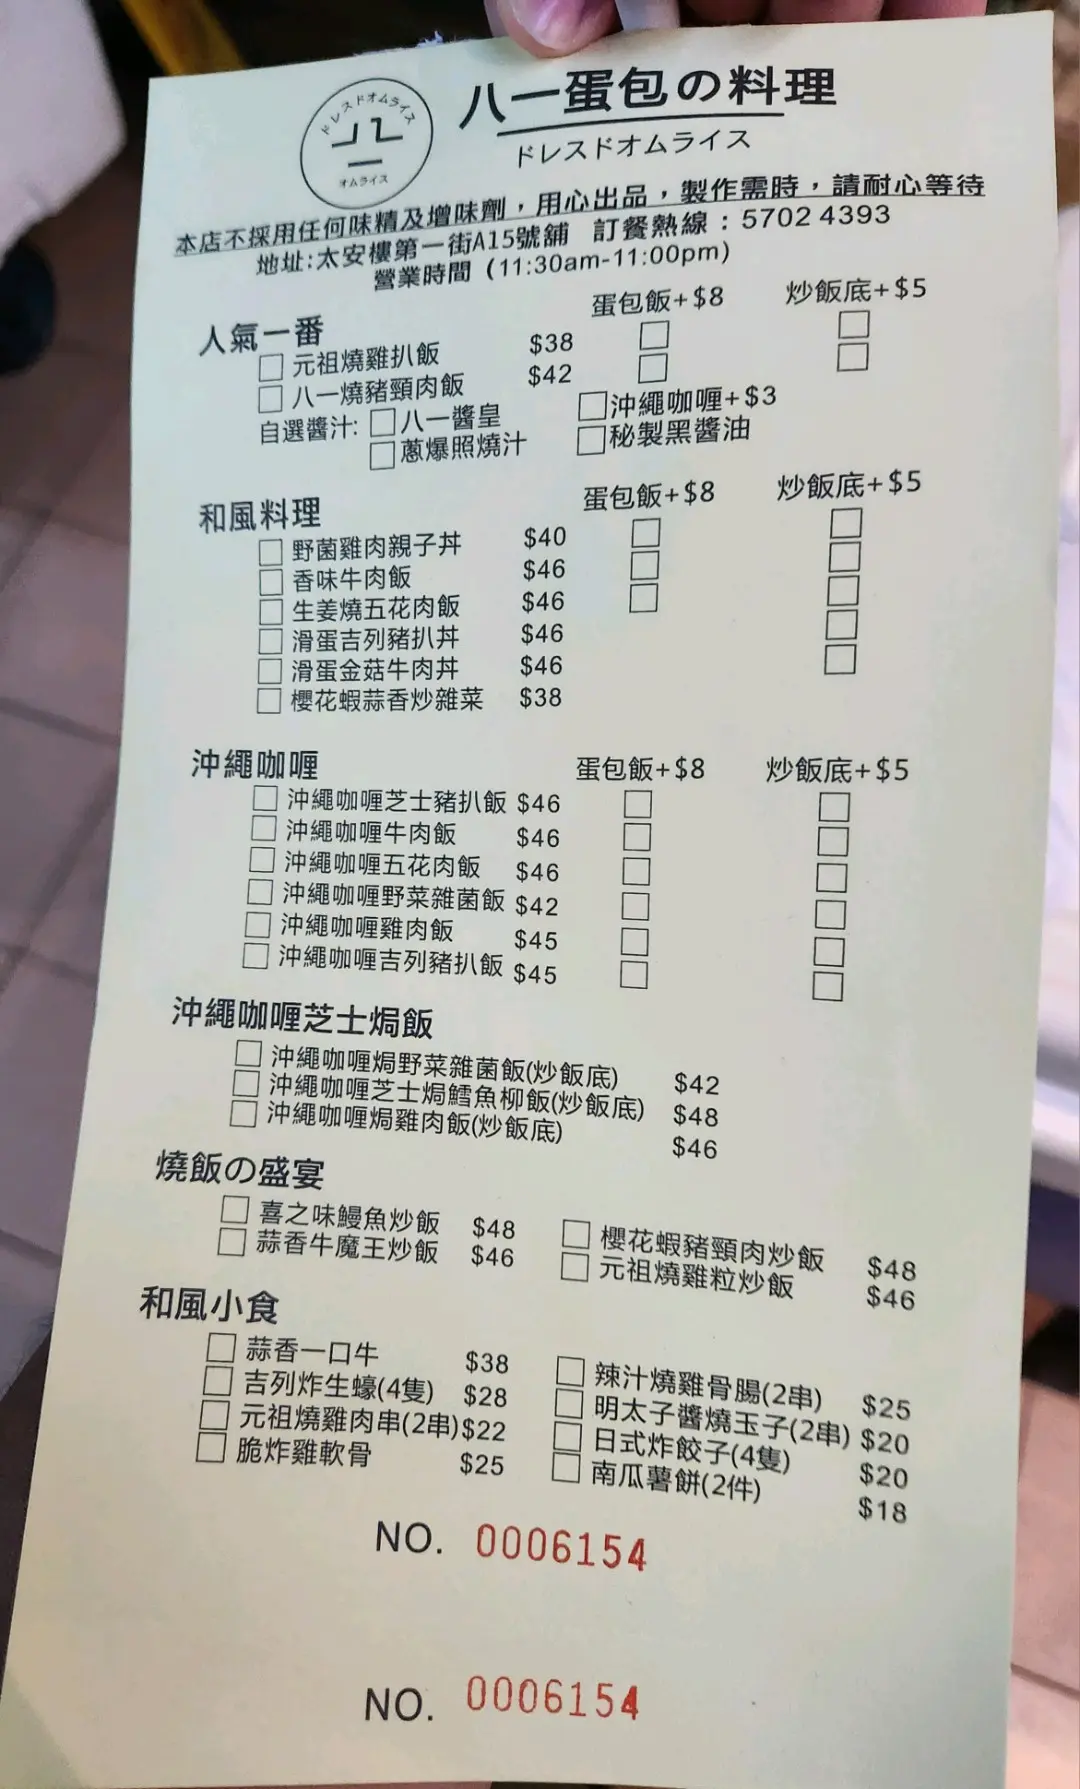 ドレスドオムライス
八一
オムライス
八一蛋包の料理
ドレスドオムライス
本店不採用任何味精及增味劑，用心出品，製作需時，請耐心等待
地址:太安樓第一街A15號舖 訂餐熱線：5702 4393
營業時間（11:30am-11:00pm)
人氣一番 蛋包飯+$8 炒飯底+$5
元祖燒雞扒飯 $38
八一燒豬頸肉飯 $42
自選醬汁: 八一醬皇 沖繩咖喱+$3
蔥爆照燒汁 秘製黑醬油
和風料理 蛋包飯+$8 炒飯底+$5
野菌雞肉親子丼 $40
香味牛肉飯 $46
生姜燒五花肉飯 $46
滑蛋吉列豬扒丼 $46
滑蛋金菇牛肉丼 $46
櫻花蝦蒜香炒雜菜 $38
沖繩咖喱 蛋包飯+$8 炒飯底+$5
沖繩咖喱芝士豬扒飯 $46
沖繩咖喱牛肉飯 $46
沖繩咖喱五花肉飯 $46
沖繩咖喱野菜雜菌飯 $42
沖繩咖喱雞肉飯 $45
沖繩咖喱吉列豬扒飯 $45
沖繩咖喱芝士焗飯
沖繩咖喱焗野菜雜菌飯(炒飯底) $42
沖繩咖喱芝士焗鱈魚柳飯(炒飯底) $48
沖繩咖喱焗雞肉飯(炒飯底) $46
燒飯の盛宴
喜之味鰻魚炒飯 $48 櫻花蝦豬頸肉炒飯 $48
蒜香牛魔王炒飯 $46 元祖燒雞粒炒飯 $46
和風小食
蒜香一口牛 $38 辣汁燒雞骨腸(2串) $25
吉列炸生蠔(4隻) $28 明太子醬燒玉子(2串) $20
元祖燒雞肉串(2串) $22 日式炸餃子(4隻) $20
脆炸雞軟骨 $25 南瓜薯餅(2件) $18
NO. 0006154
NO. 0006154